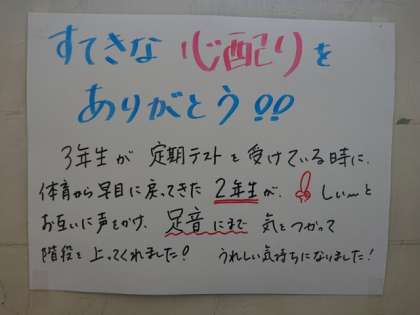 すてきな心配りを
ありがとう!!
3年生が定期テストを受けている時に、
体育から早目に戻ってきた2年生が、しぃ〜と
お互いに声をかけ、足音にまで気をつかって
階段を上ってくれました! うれしい気持ちになりました!